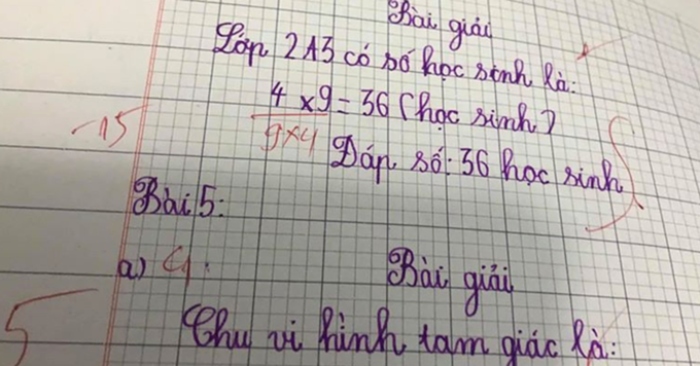 Bài giải
Lớp 2A3 có số học sinh là:
4 x 9 = 36 (học sinh)
-15
9x4
Đáp số: 36 học sinh
Bài 5:
a)
Bài giải
Chu vi hình tam giác là:
5